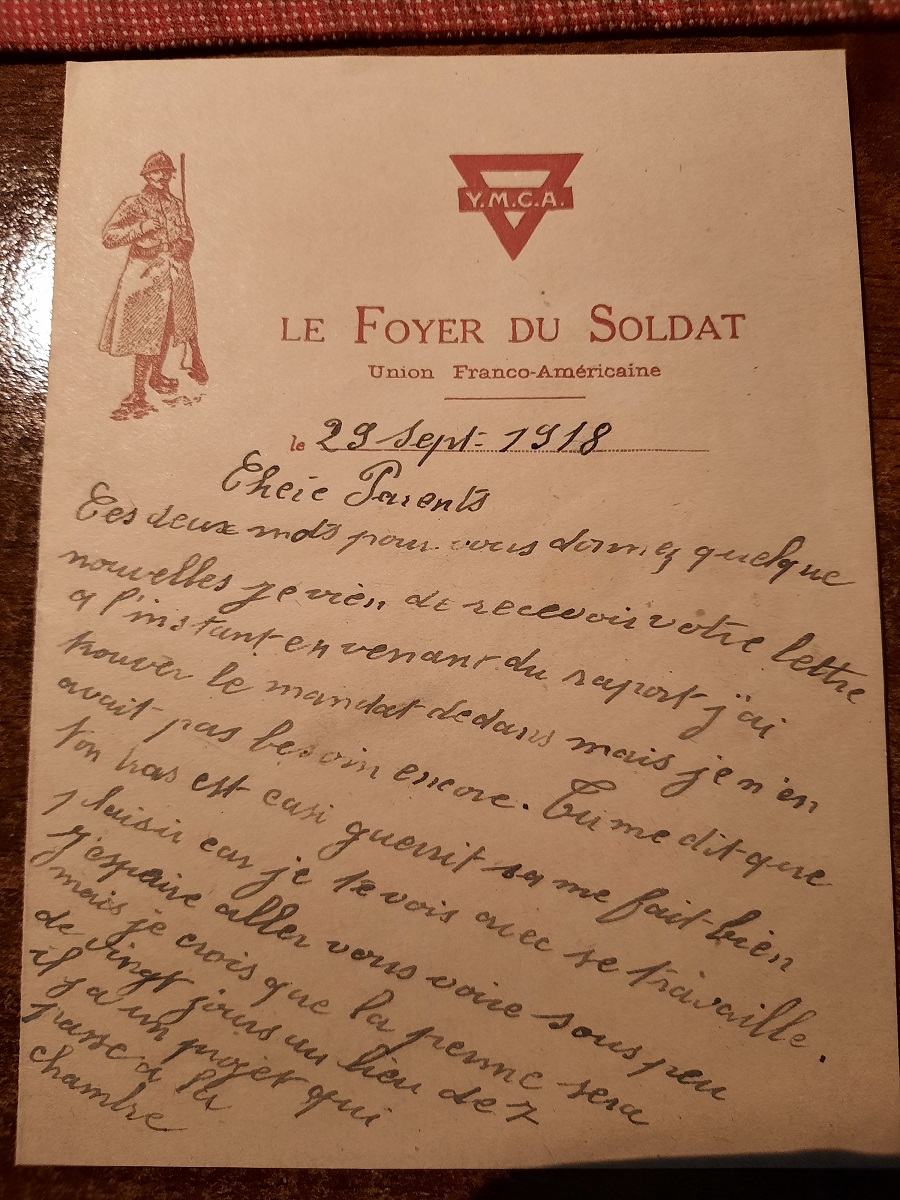 Y.M.C.A.
LE FOYER DU SOLDAT
Union Franco-Américaine
le 29 Sept- 1918
Cheie Parents
Ces deux mots pour vous donnez quelque
nouvelles je vien de recevoir votre lettre
a l'instant en venant du raport j'ai
trouver le mandat dedans mais je n'en
avait pas besoin encore. Tu me dit que
ton bras est casi guerrit sa me fait bien
plaisir car je te vois avec se travaille.
J'espaire aller vous voire sous peu
mais je crois que la perme sera
de vingt jours au lieu de 7
il y a un projet qui
passe a la
chambre